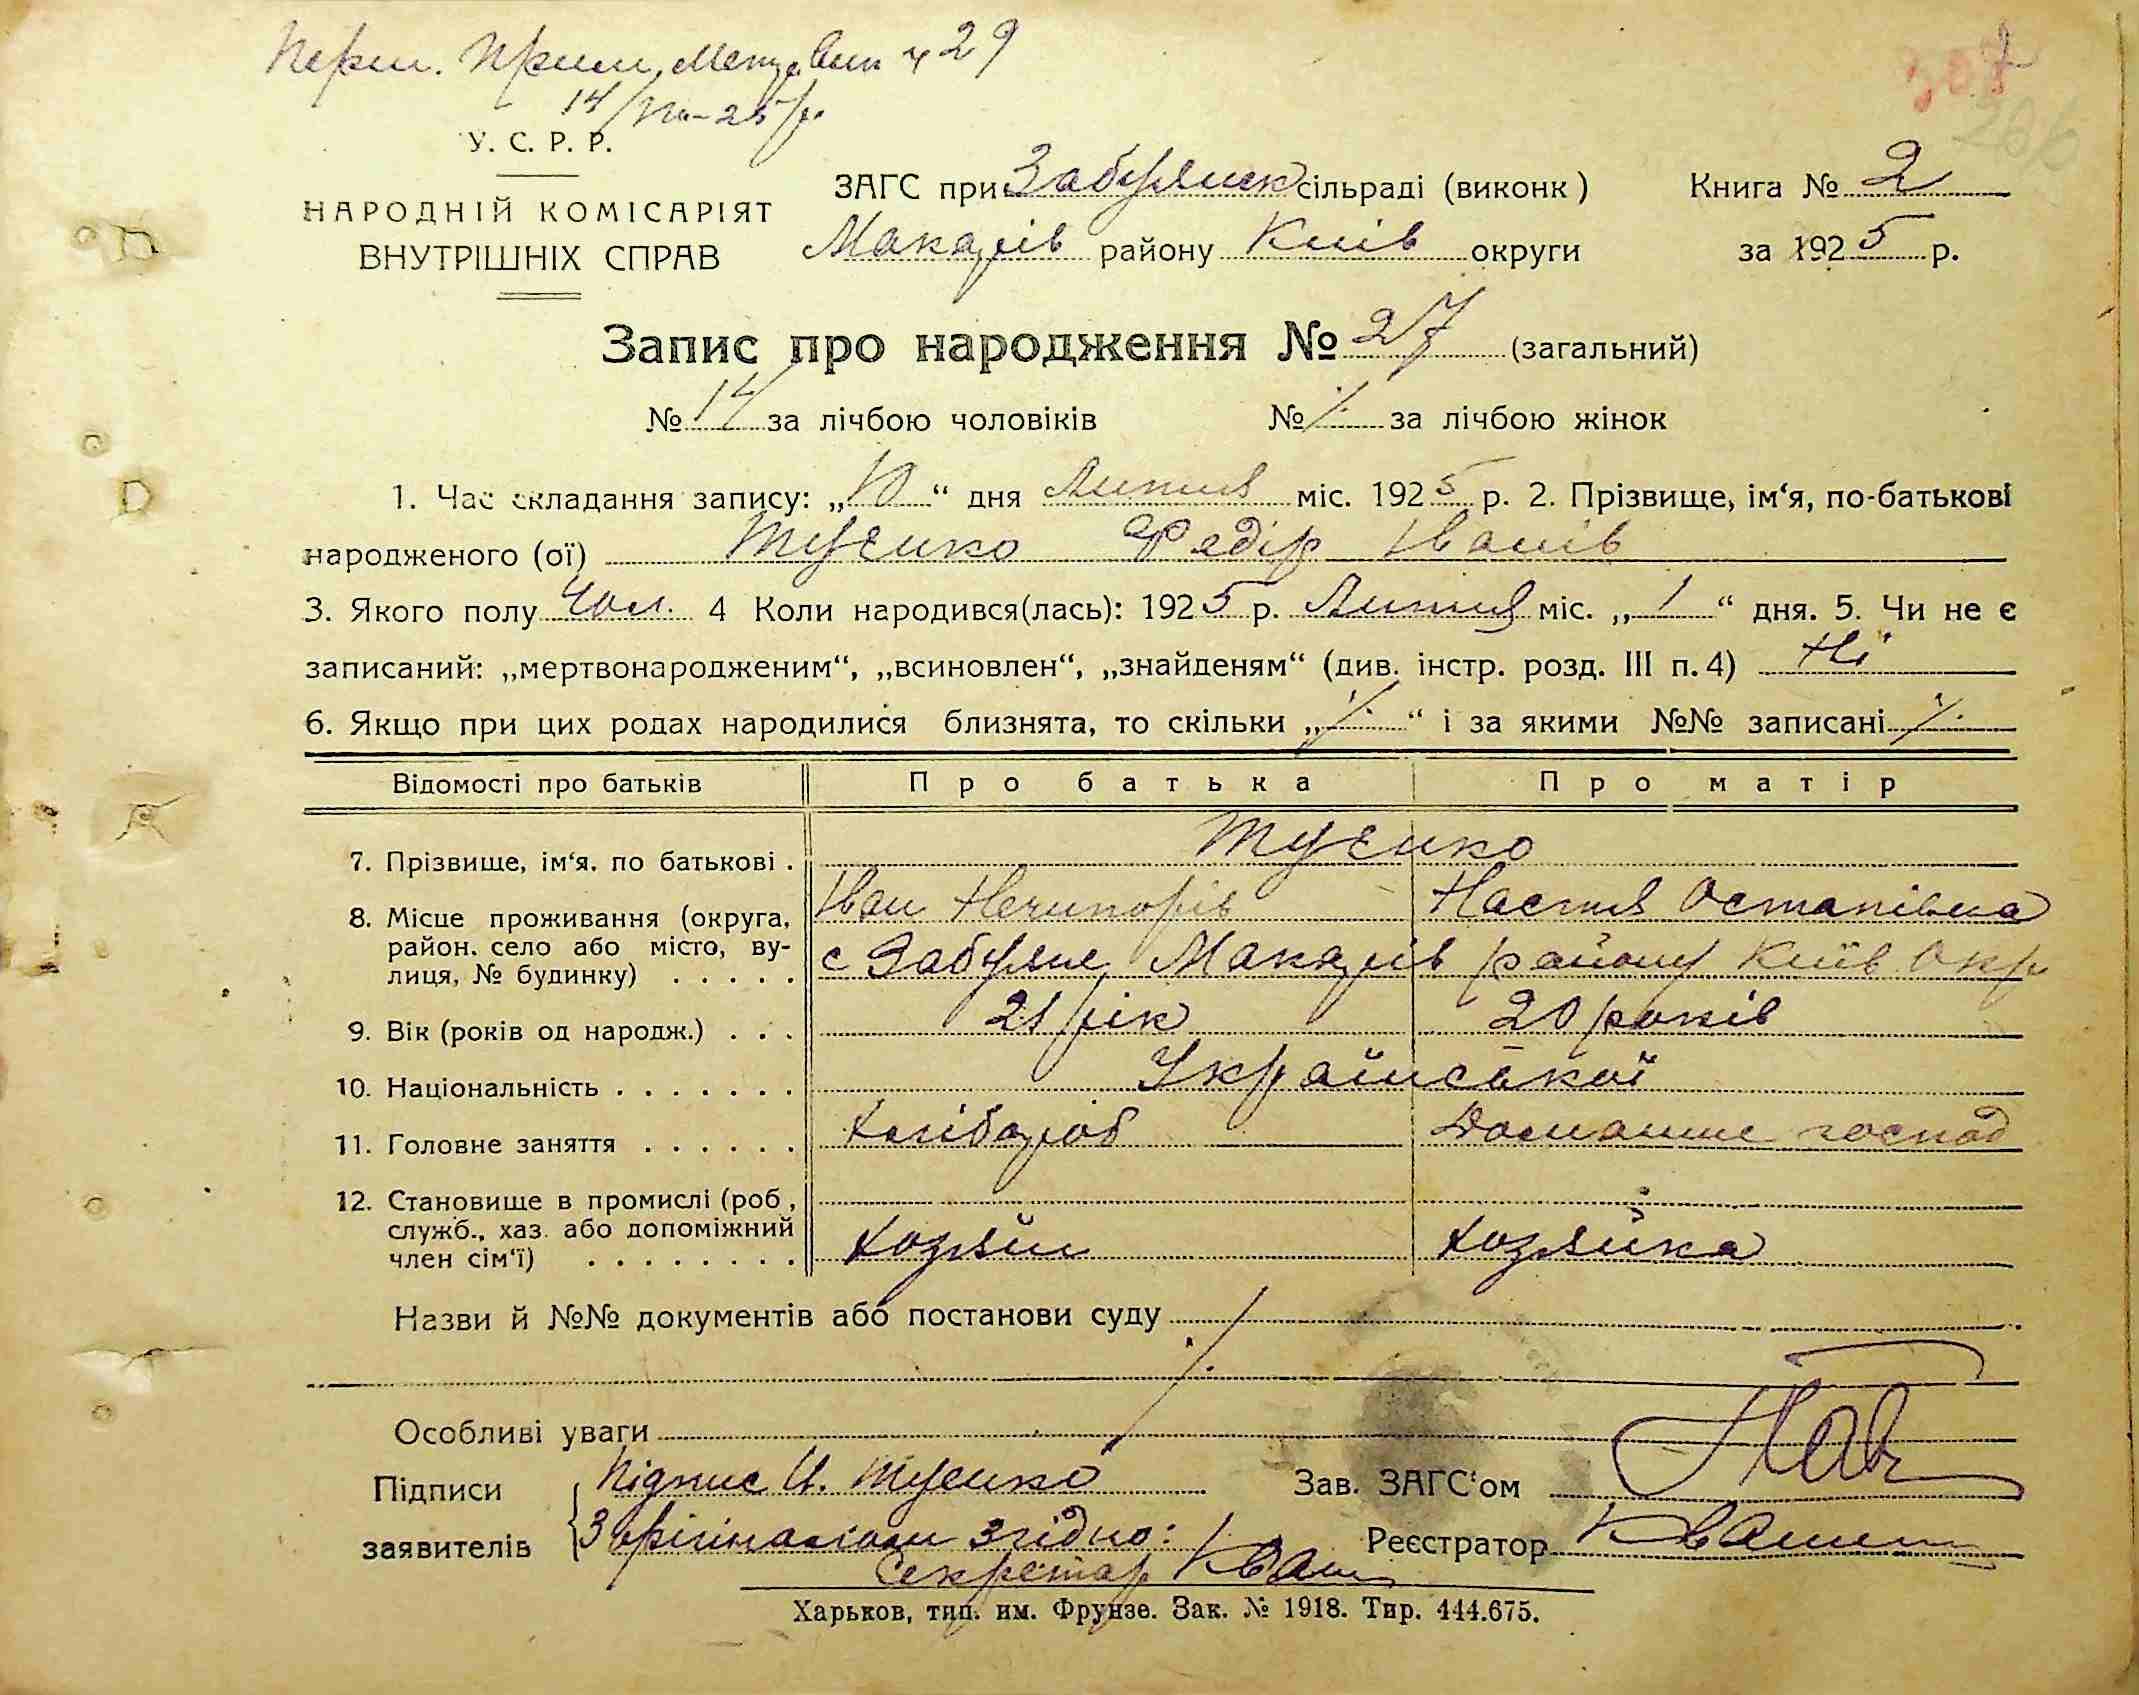 Перш. Прим. Метр. Вип ч 29
14/VII-25 р.
307
206
У. С. Р. Р.
НАРОДНІЙ КОМІСАРІЯТ
ВНУТРІШНІХ СПРАВ
ЗАГС при Забуянск сільраді (виконк)
Макарів району Київ округи
Книга № 2
за 1925 р.
Запис про народження № 27 (загальний)
№ 14 за лічбою чоловіків № /. за лічбою жінок
1. Час складання запису: „10“ дня Липня міс. 1925 р. 2. Прізвище, ім‘я, по-батькові
народженого (ої) Тусенко Федір Іванів
3. Якого полу Чол. 4 Коли народився(лась): 1925 р. Липня міс. „1“ дня. 5. Чи не є
записаний: „мертвонародженим“, „всиновлен“, „знайденям“ (див. інстр. розд. III п. 4) Ні
6. Якщо при цих родах народилися близнята, то скільки „/.“ і за якими №№ записані /.
Відомості про батьків Про батька Про матір
7. Прізвище, ім‘я. по батькові . Тусенко
Іван Нечипорів Настя Остапівна
8. Місце проживання (округа, район. село або місто, вулиця, № будинку) . . . . . с Забуяне Макарів району Київ Окр
9. Вік (років од народж.) . . . 21 рік 20 років
10. Національність . . . . . . . Української
11. Головне заняття . . . . . . Хлібороб Домашнє господ
12. Становище в промислі (роб, служб., хаз. або допоміжний член сім‘ї) . . . . . . . . Хозяїн Хозяйка
Назви й №№ документів або постанови суду /.
Особливі уваги
Підписи заявителів
Підпис И. Тусенко
З орігіналом згідно:
Секретар
Зав. ЗАГС‘ом
Реєстратор
Харьков, тип. им. Фрунзе. Зак. № 1918. Тир. 444.675.